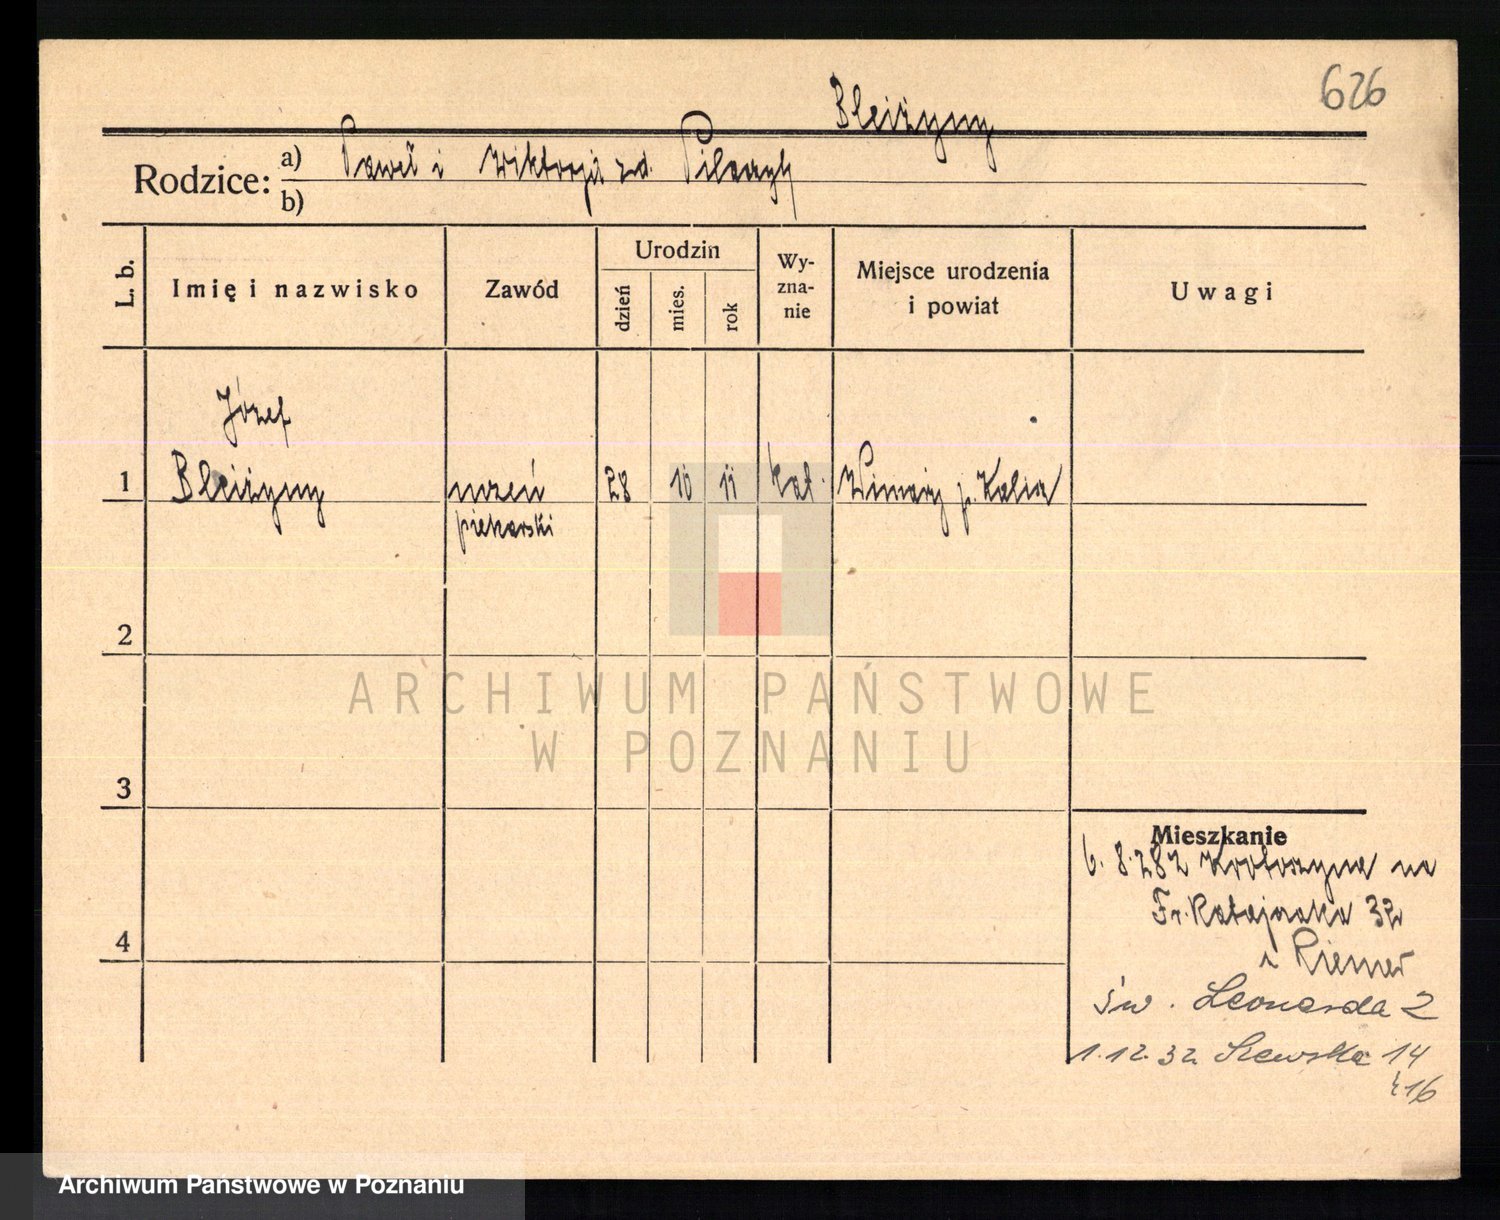 626
Bleiżyny
Rodzice: a) Paweł i Wiktorja zd. Pilarczyk
b)
L. b.
Imię i nazwisko
Zawód
Urodzin
dzień
mies.
rok
Wy-
zna-
nie
Miejsce urodzenia
i powiat
Uwagi
Józef
1 Bleiżyny uczeń 28 10 11 kat. p. Kalisz
piekarski
2
ARCHIWUM PAŃSTWOWE
W POZNANIU
3
4
Mieszkanie
6. 8. 282 Krotoszyna na
Fr. Ratajczaka 32
Riemer
św. Leonarda 2
1.12.32 Szewska 14
16
Archiwum Państwowe w Poznaniu